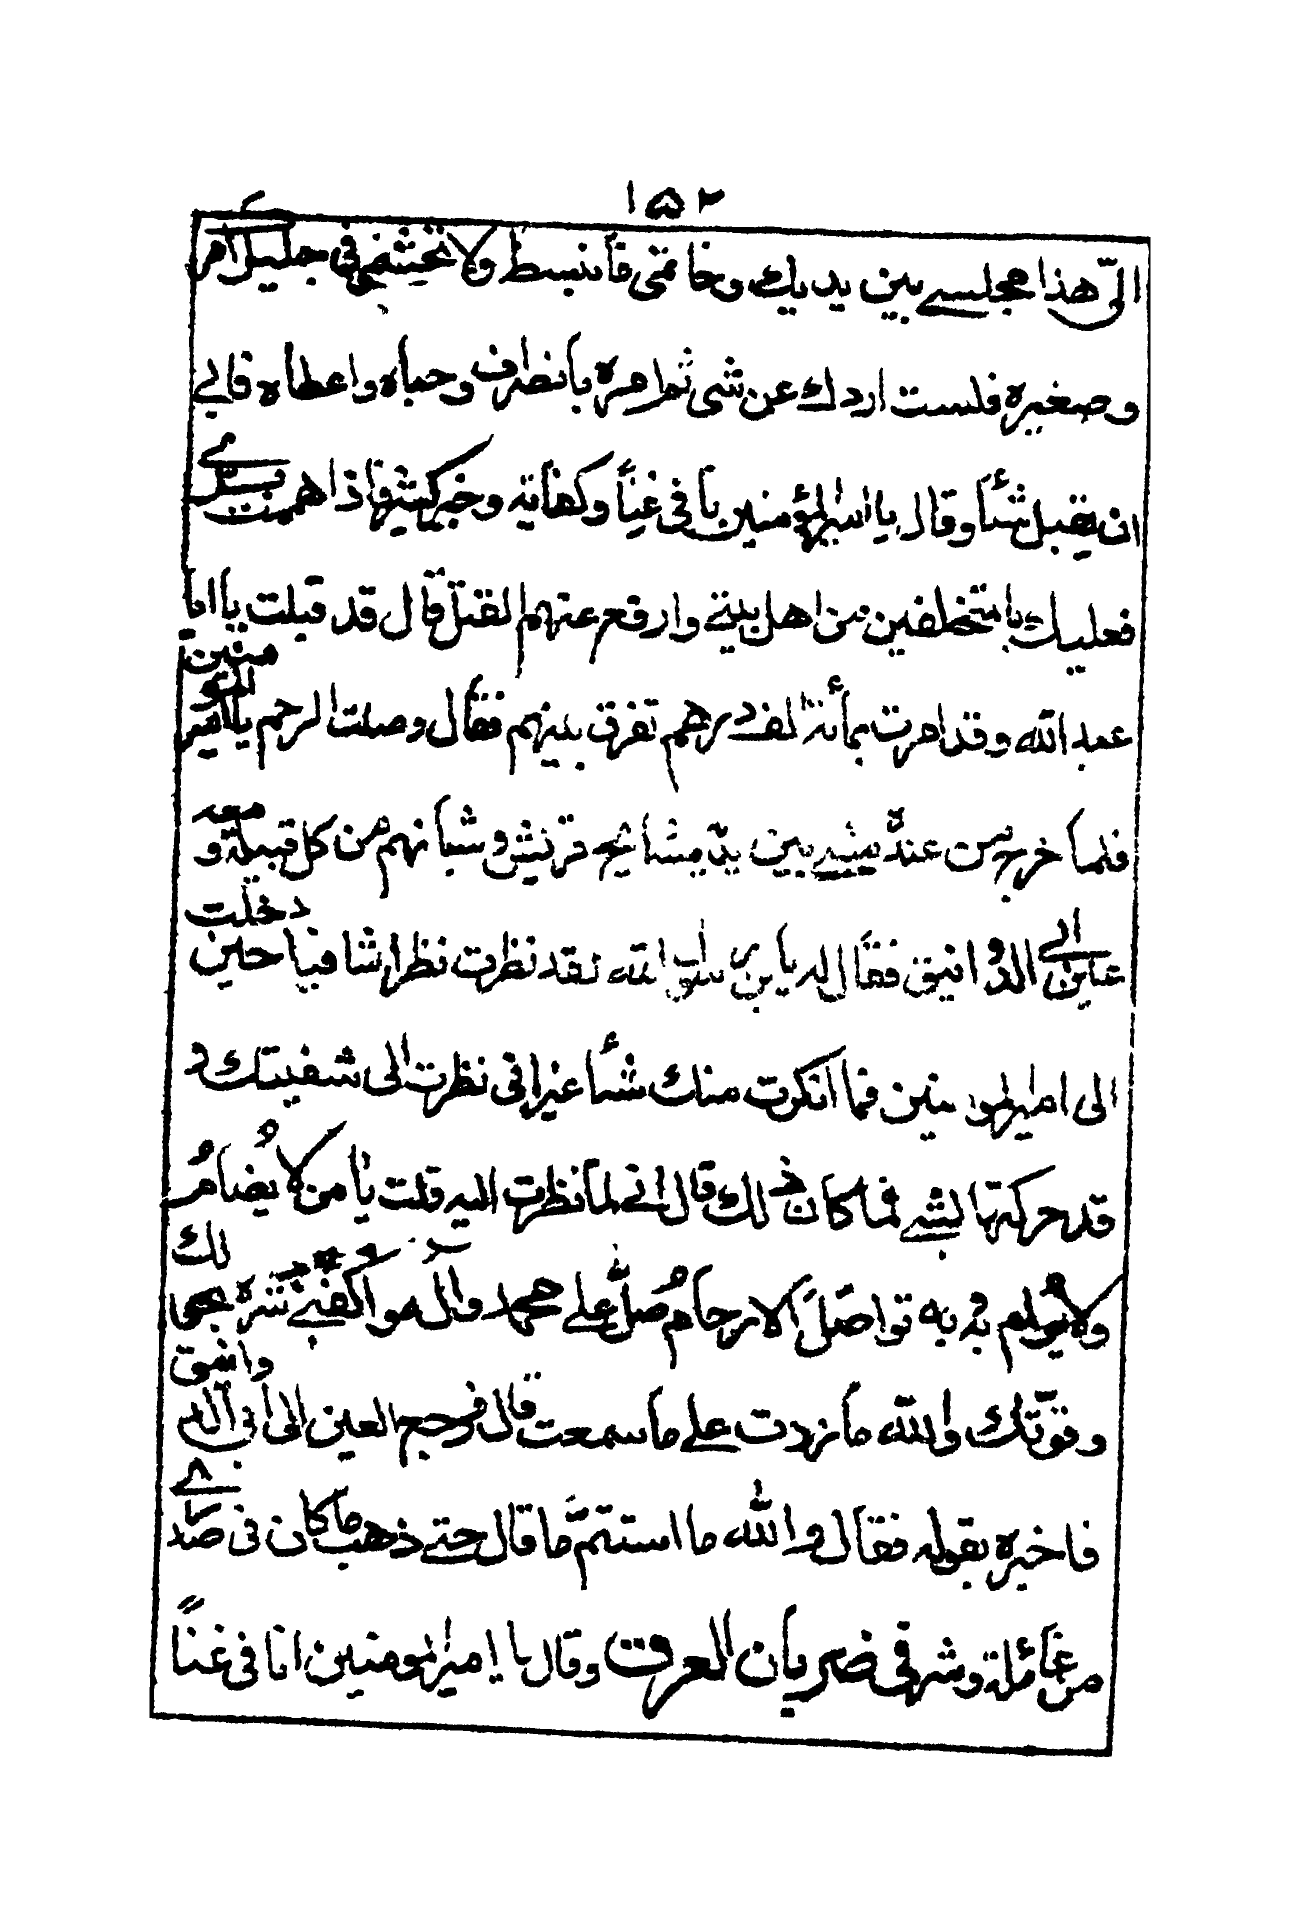 ١٥٢
الىّ هذا مجلسے بين يديك وخاتمتى فأنبسط ولا تحتشم فى جليل امر
وصغيره فلست اردك عن شى ثم امره بأنصراف وحباه واعطاه فابى
ان يقبل شئا وقال يا امير المؤمنين انا فى غنًا وكفايه وخير كثير فاذا هممت ببرّى
فعليك با لمتخلفين من اهل بيتى وارفع عنهم القتل قال قد قبلت يا ابا
عبد الله وقد امرت بمأئة الف درهم تفرق بينهم فقال وصلت الرحم يا امير المؤمنين
فلما خرج من عنده مشى بين يديه مشايخ قريش وشبانهم من كل قبيلة و معه
عين ابى الدوانيق فقال له يا بن رسول الله لقد نظرت نظرا شافيا حين دخلت
الى امير المومنين فما انكرت منك شئا غير انى نظرت الى شفيتك و
قد حركتها بشى فما كان ذلك قال انى لما نظرت اليه قلت يا من لا يُضامُ
ولا يُرام به تواصَلَ الارحام صُلّ على محمد وآل هو اكفنى شره بحو لك
وقوّتك والله ما زدت على ما سمعت قال فرجع العين الى ابى الدوانيق
فاخبره بقوله فقال والله ما استتمّ ما قال حتى ذهب ما كان فى صدرى
من غائلة وشر فى ضربان العرق وقال يا امير المومنين انا فى غنًا